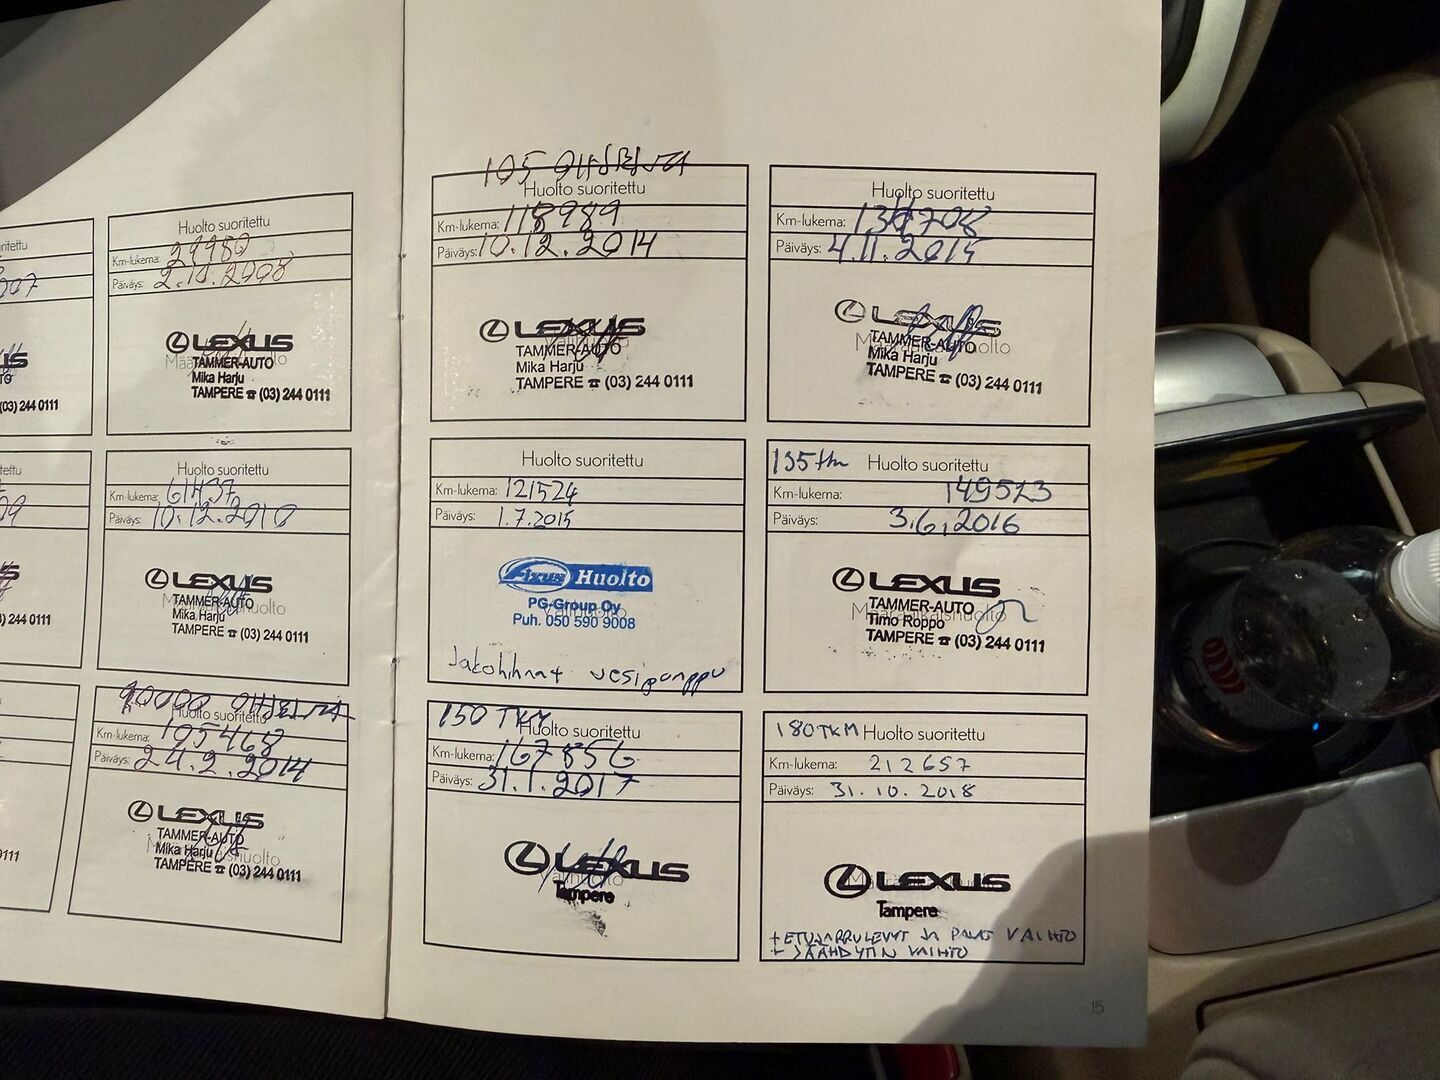 Huolto suoritettu
Km-lukema: 29980
Päiväys: 2.10.2008
LEXUS
TAMMER-AUTO
Mika Harju
TAMPERE ☎ (03) 244 0111
(03) 244 0111
Huolto suoritettu
Km-lukema: 61437
Päiväys: 10.12.2010
LEXUS
TAMMER-AUTO
Mika Harju
TAMPERE ☎ (03) 244 0111
244 0111
90000 OHJELMA
Huolto suoritettu
Km-lukema: 105468
Päiväys: 24.2.2014
LEXUS
TAMMER-AUTO
Mika Harju
TAMPERE ☎ (03) 244 0111
105 OHJELMA
Huolto suoritettu
Km-lukema: 118989
Päiväys: 10.12.2014
LEXUS
TAMMER-AUTO
Mika Harju
TAMPERE ☎ (03) 244 0111
Huolto suoritettu
Km-lukema:
Päiväys: 4.11.2015
LEXUS
TAMMER-AUTO
Mika Harju
TAMPERE ☎ (03) 244 0111
Huolto suoritettu
Km-lukema: 121524
Päiväys: 1.7.2015
Axus Huolto
PG-Group Oy
Välihuolto
Puh. 050 590 9008
Jakohihnat vesipumppu
135tkm Huolto suoritettu
Km-lukema: 149523
Päiväys: 3.6.2016
LEXUS
TAMMER-AUTO
Määräaikaishuolto
Timo Roppo
TAMPERE ☎ (03) 244 0111
150 TKM
Huolto suoritettu
Km-lukema: 167856
Päiväys: 31.1.2017
LEXUS
Välihuolto
Tampere
180TKM Huolto suoritettu
Km-lukema: 212657
Päiväys: 31.10.2018
LEXUS
Tampere
+ ETUJARRULEVYT JA PALAT VAIHTO
+ JÄÄHDYTIN VAIHTO
15